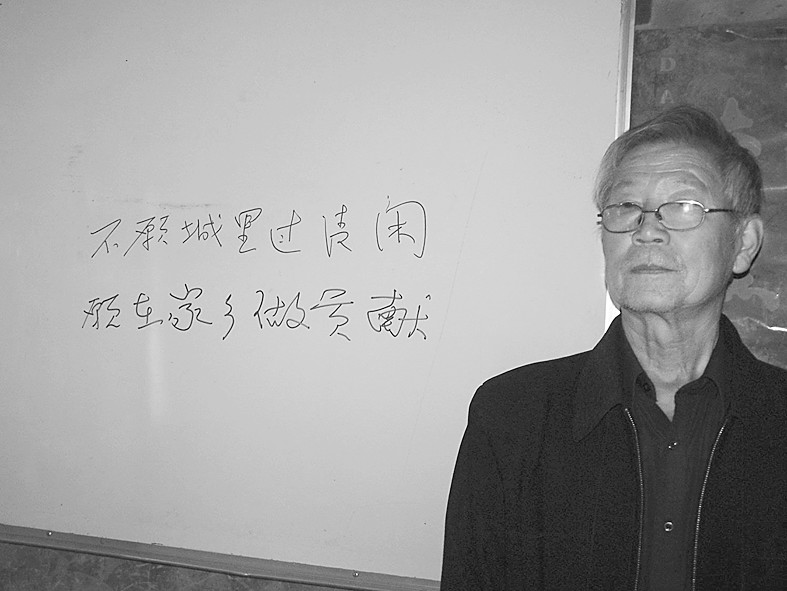 不愿城里过清闲
愿在家乡做贡献
DA